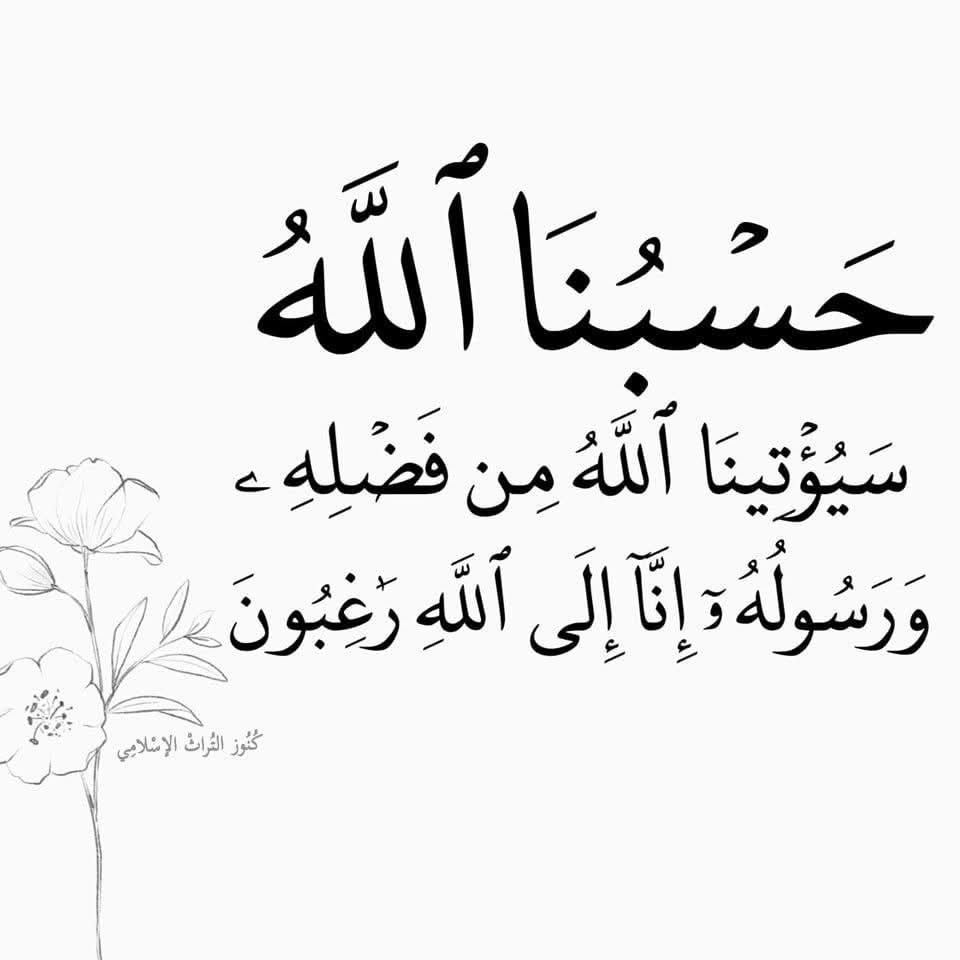 حَسْبُنَا ٱللَّهُ
سَيُؤْتِينَا ٱللَّهُ مِن فَضْلِهِۦ
وَرَسُولُهُۥٓ إِنَّآ إِلَى ٱللَّهِ رَٰغِبُونَ
كُنُوز التُراثْ الإسْلامِي